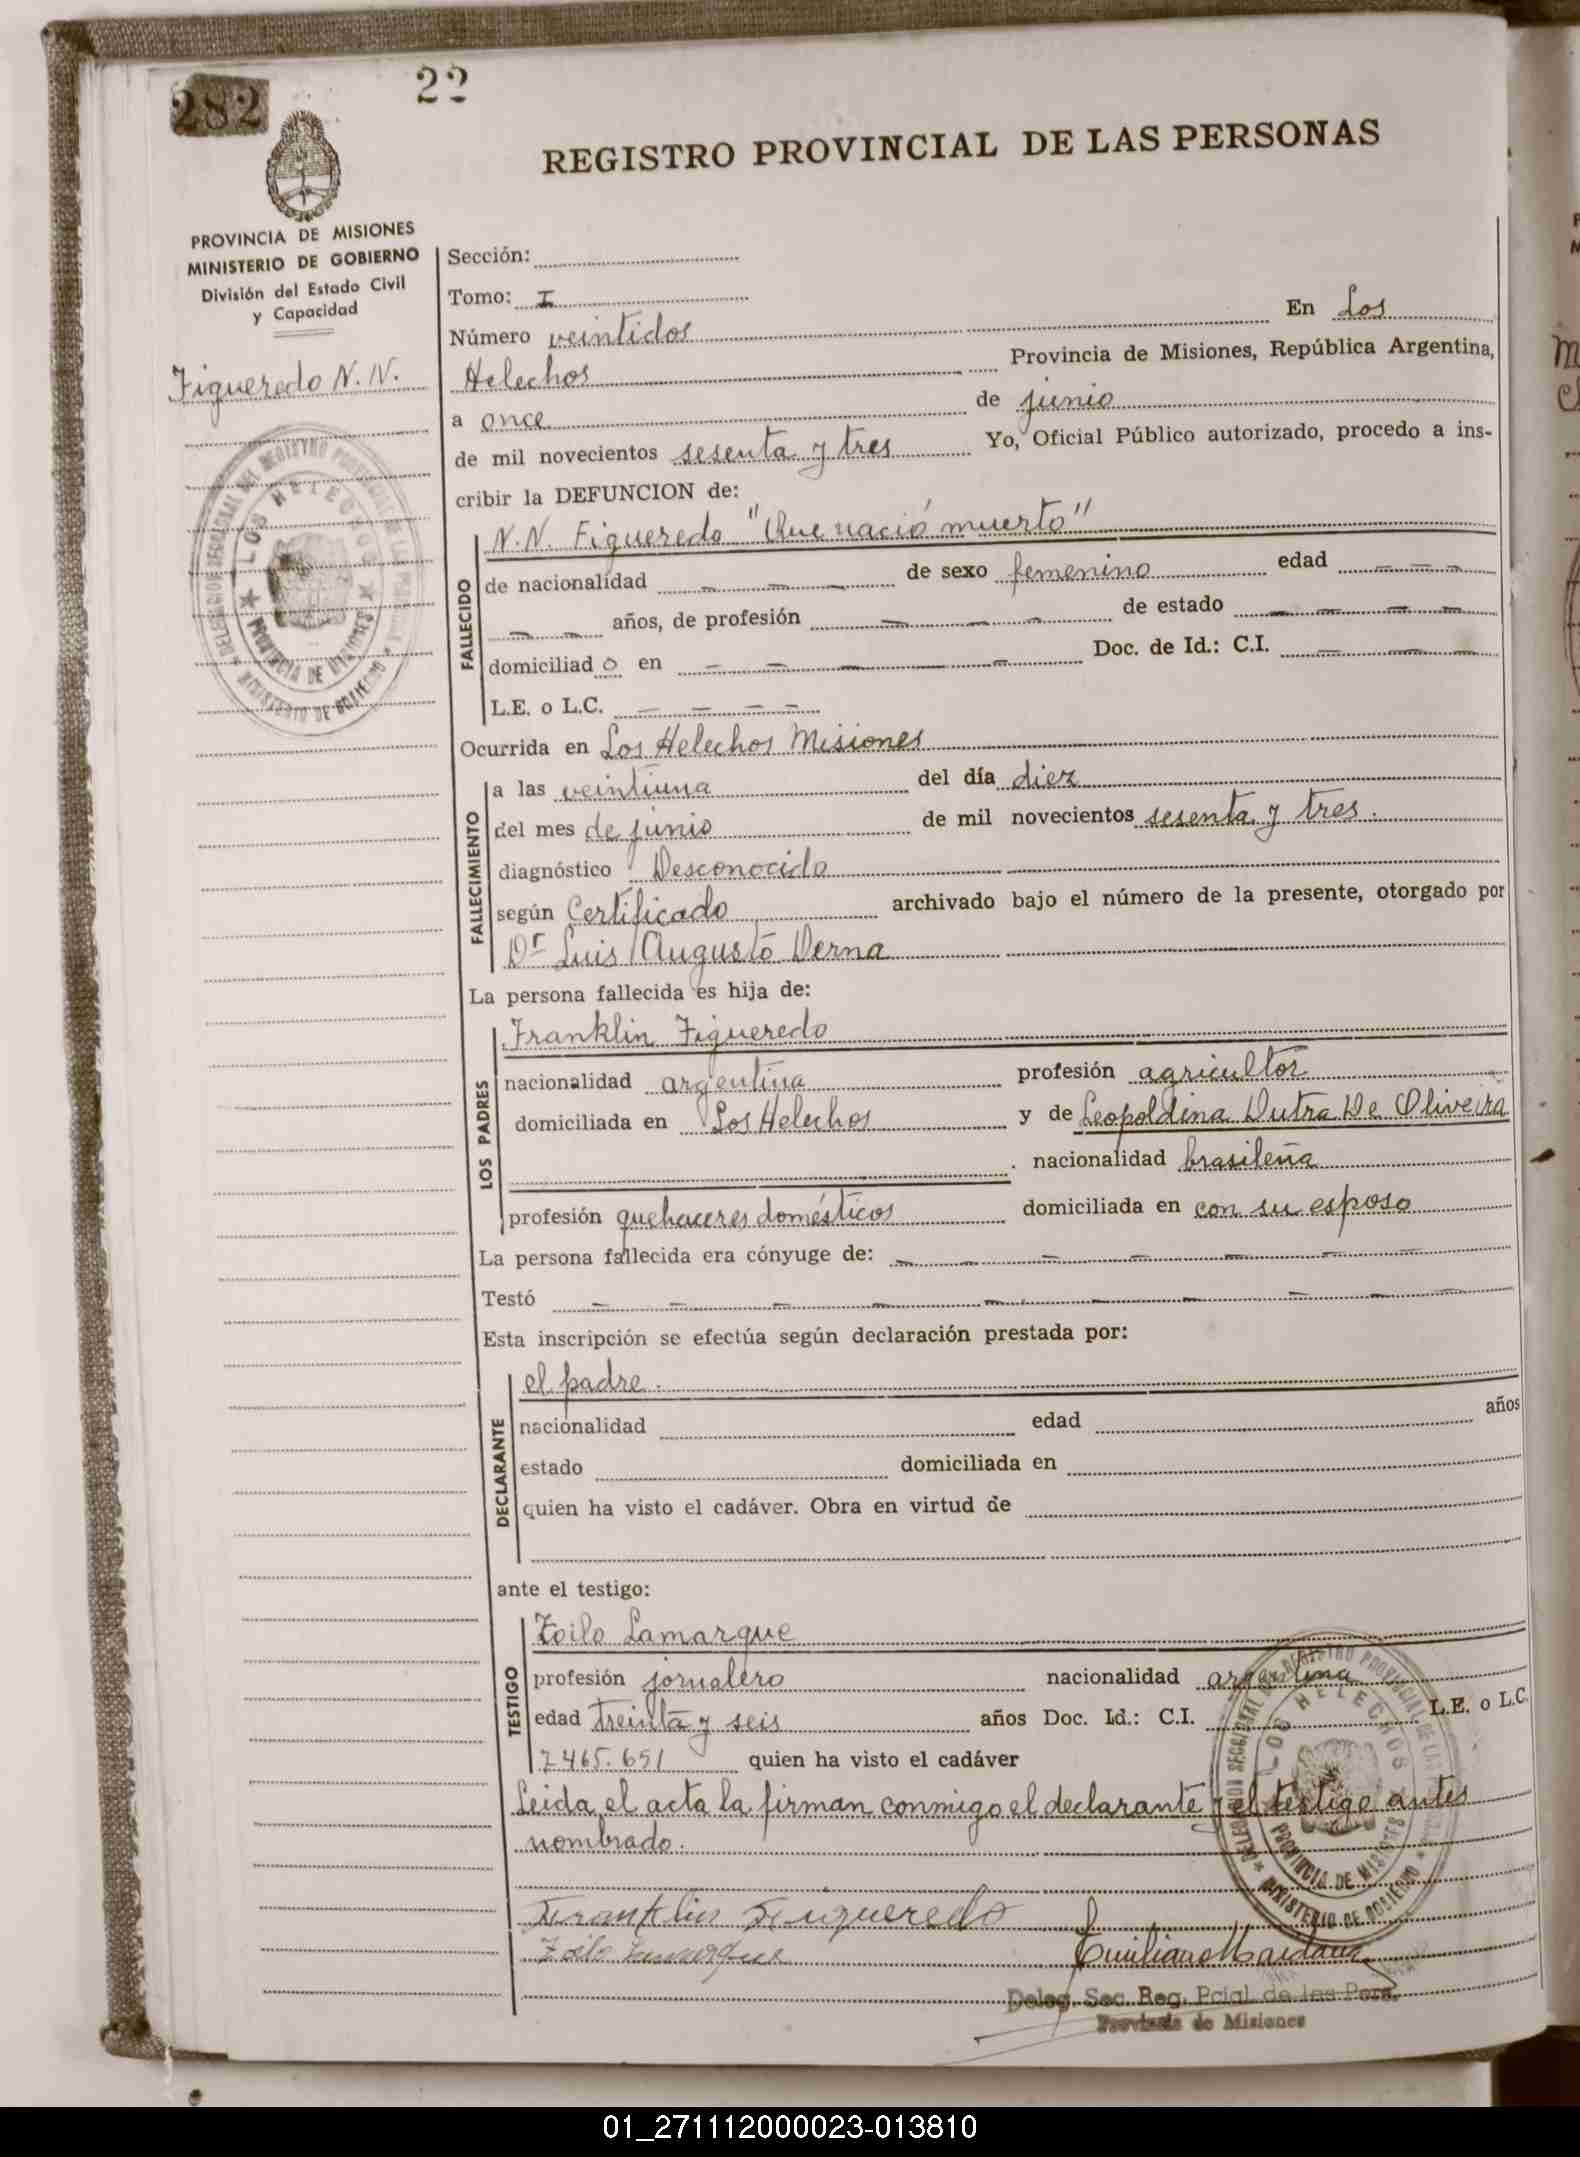 282
22
REGISTRO PROVINCIAL DE LAS PERSONAS
PROVINCIA DE MISIONES
MINISTERIO DE GOBIERNO
División del Estado Civil
y Capacidad
Figueredo N.N.
DELEGACION SECCIONAL DEL REGISTRO PROVINCIAL DE LAS PERSONAS
LOS HELECHOS
PROVINCIA DE MISIONES
MINISTERIO DE GOBIERNO
Sección:
Tomo: I
Número veintidos En Los
Helechos Provincia de Misiones, República Argentina,
a once de junio
de mil novecientos sesenta y tres Yo, Oficial Público autorizado, procedo a ins-
cribir la DEFUNCION de:
FALLECIDO
N.N. Figueredo "Que nació muerto"
de nacionalidad — — — de sexo femenino edad — — —
— — años, de profesión — — — de estado — — — —
domiciliado en — — — — Doc. de Id.: C.I. — — —
L.E. o L.C. — — — —
Ocurrida en Los Helechos Misiones
FALLECIMIENTO
a las veintiuna del día diez
del mes de junio de mil novecientos sesenta y tres.
diagnóstico Desconocido
según Certificado archivado bajo el número de la presente, otorgado por
Dr Luis Augusto Derna
La persona fallecida es hija de:
LOS PADRES
Franklin Figueredo
nacionalidad argentina profesión agricultor
domiciliada en Los Helechos y de Leopoldina Dutra De Oliveira
nacionalidad brasileña
profesión quehaceres domésticos domiciliada en con su esposo
La persona fallecida era cónyuge de: — — — — — —
Testó — — — — — — — — — —
Esta inscripción se efectúa según declaración prestada por:
DECLARANTE
el padre.
nacionalidad edad años
estado domiciliada en
quien ha visto el cadáver. Obra en virtud de
ante el testigo:
TESTIGO
Zoilo Lamarque
profesión jornalero nacionalidad argentina
edad treinta y seis años Doc. Id.: C.I. L.E. o L.C.
7465.651 quien ha visto el cadáver
Leida el acta la firman conmigo el declarante y el testigo antes
nombrado.
DELEGACION SECCIONAL DEL REGISTRO PROVINCIAL DE LAS
LOS HELECHOS
PROVINCIA DE MISIONES
MINISTERIO DE GOBIERNO
Franklin Figueredo
Zoilo Lamarque Emiliano Maidana
Deleg. Sec. Reg. Pcial de las Pers.
Provincia de Misiones
01_271112000023-013810